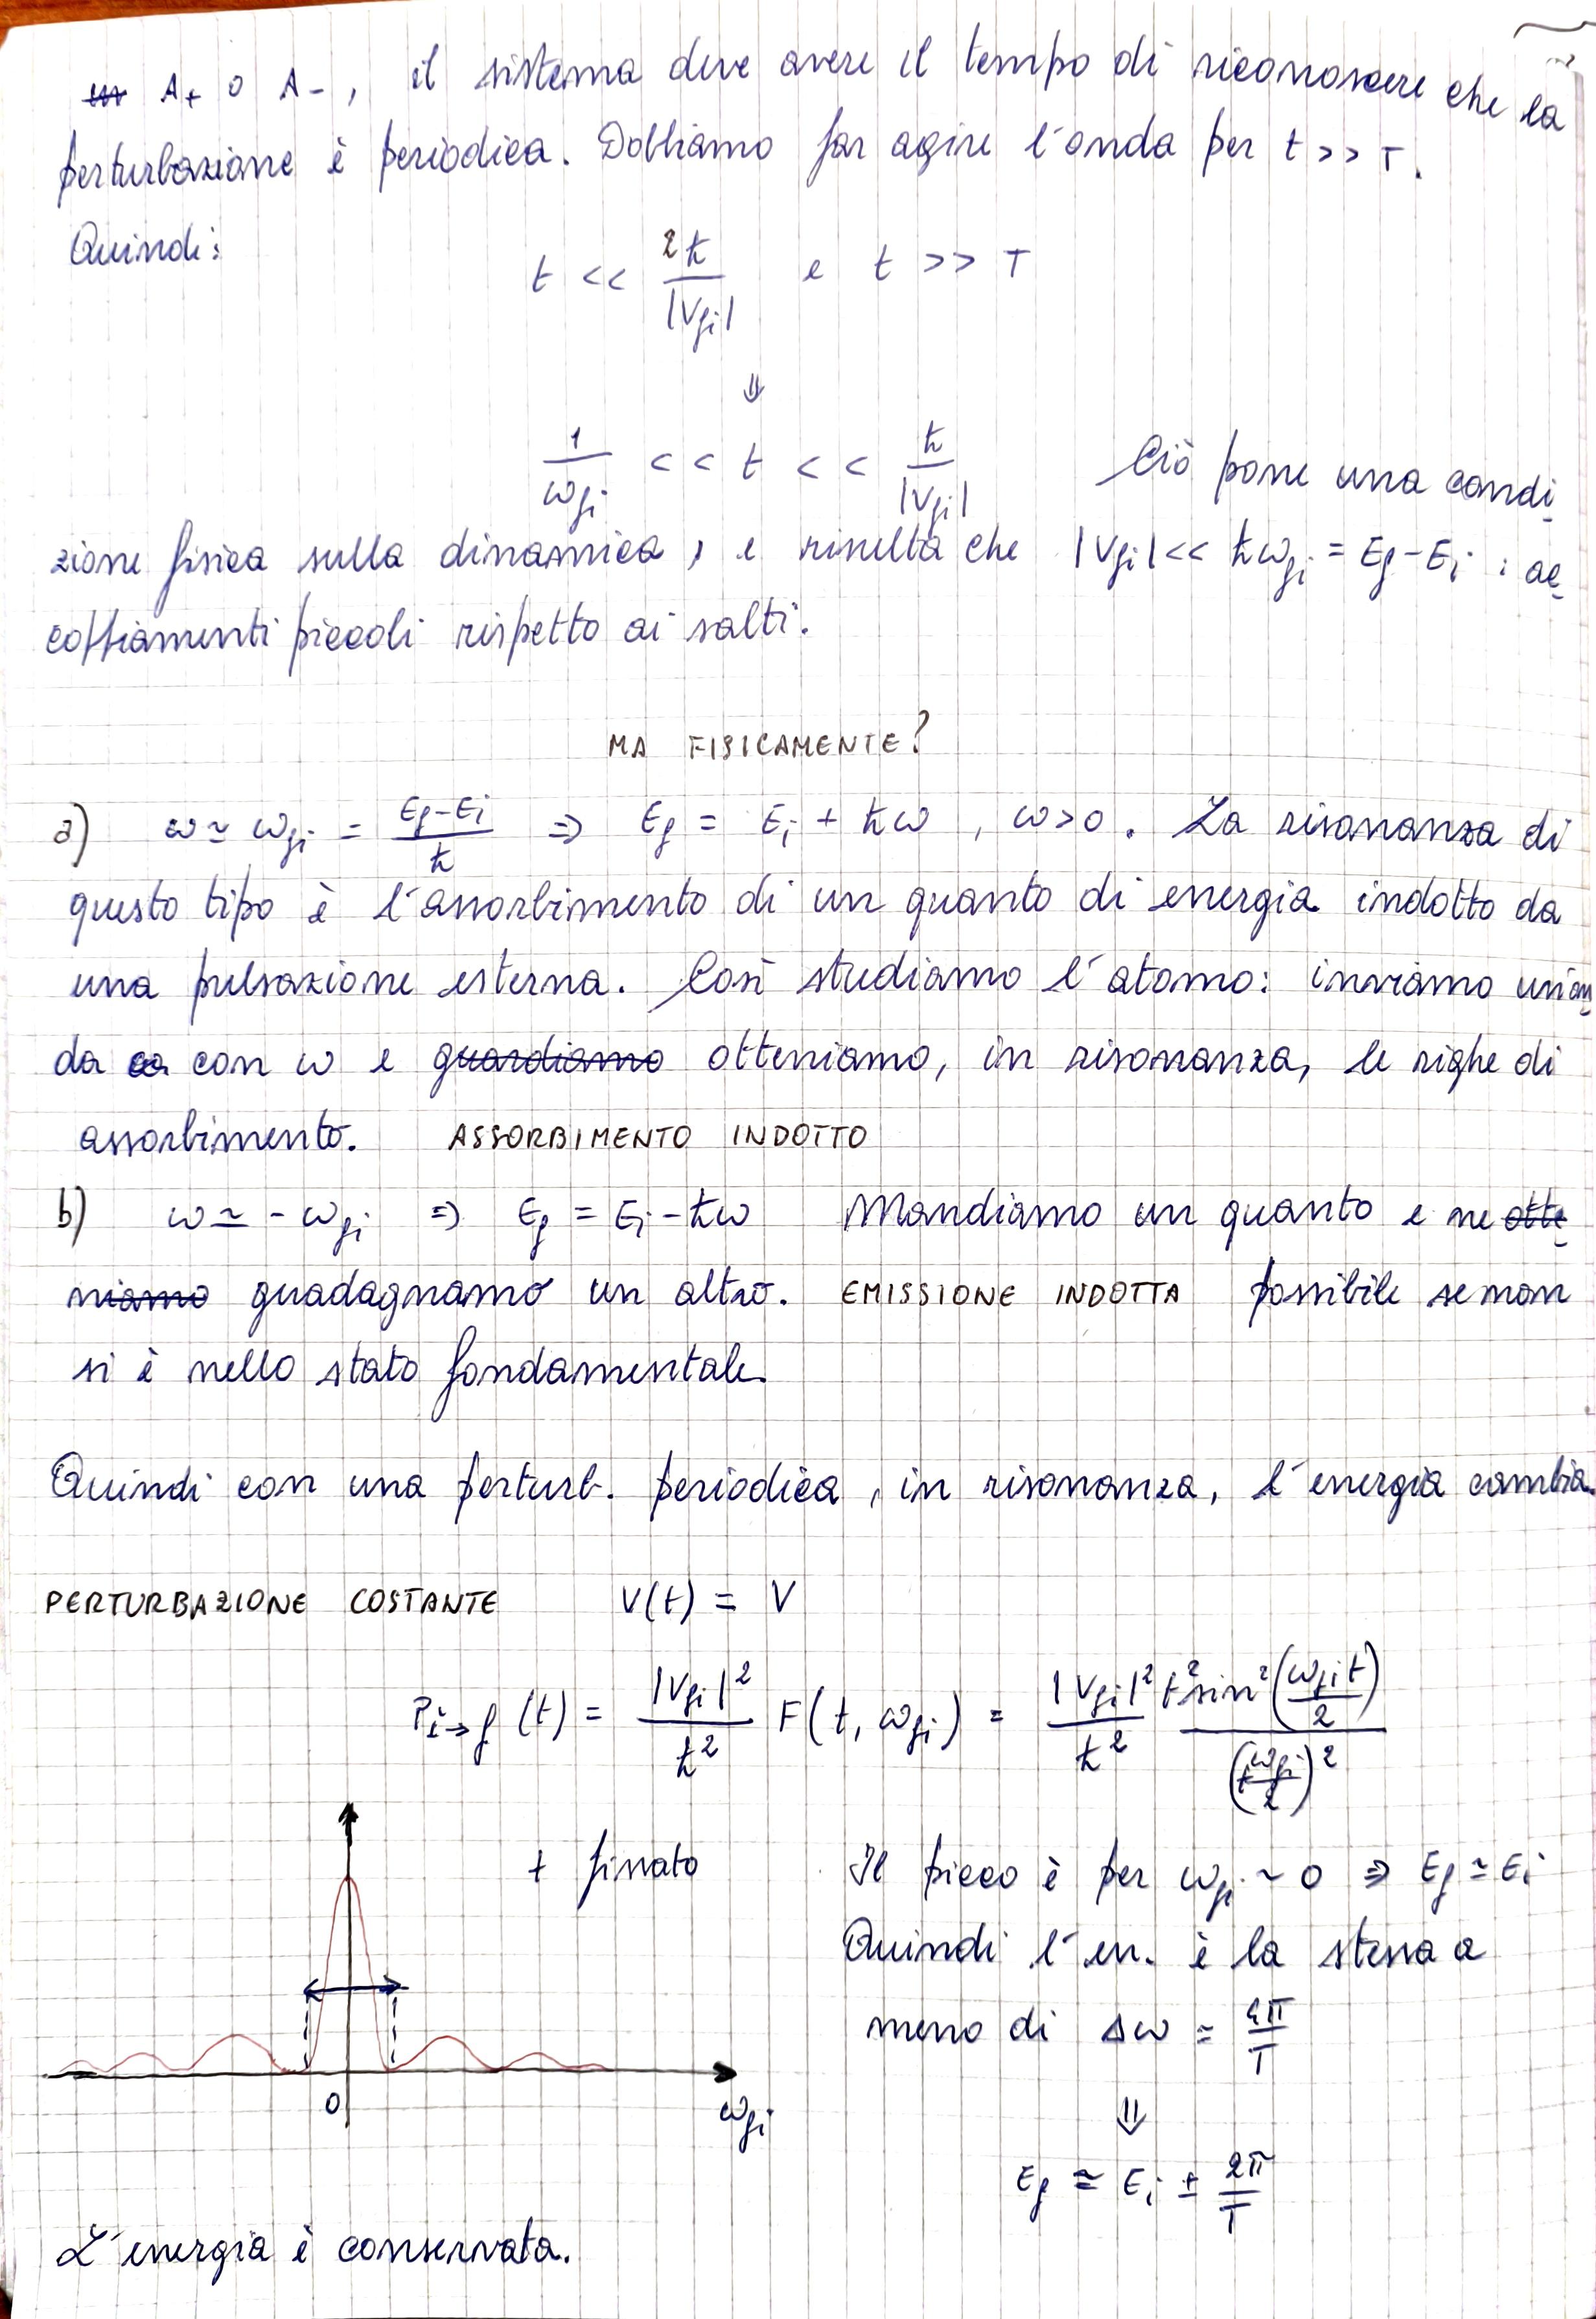 A₊ o A₋, il sistema deve avere il tempo di riconoscere che la
perturbazione è periodica. Dobbiamo far agire l'onda per t >> T.
Quindi:
t << 2ħ/|V_fi| e t >> T
⇓
1/ω_fi << t << ħ/|V_fi| Ciò pone una condi
zione fisica sulla dinamica, e risulta che |V_fi| << ħω_fi = E_f - E_i : ac
coppiamenti piccoli rispetto ai salti.
MA FISICAMENTE?
a) ω ≃ ω_fi = (E_f - E_i)/ħ ⇒ E_f = E_i + ħω , ω>0. La risonanza di
questo tipo è l'assorbimento di un quanto di energia indotto da
una pulsazione esterna. Così studiamo l'atomo: inviamo un'on
da con ω e guardiamo otteniamo, in risonanza, le righe di
assorbimento. ASSORBIMENTO INDOTTO
b) ω ≃ - ω_fi ⇒ E_f = E_i - ħω Mandiamo un quanto e ne otte
niamo guadagnamo un altro. EMISSIONE INDOTTA possibile se non
si è nello stato fondamentale.
Quindi con una perturb. periodica, in risonanza, l'energia cambia.
PERTURBAZIONE COSTANTE V(t) = V
P_i→f (t) = |V_fi|²/ħ² F(t, ω_fi) = |V_fi|²/ħ² t² sin²(ω_fi t/2)/(t ω_fi/2)²
t fissato
Il picco è per ω_fi ~ 0 ⇒ E_f ≃ E_i
Quindi l'en. è la stessa a
meno di Δω = 4π/T
⇓
E_f ≃ E_i ± 2π/T
0
ω_fi
L'energia è conservata.